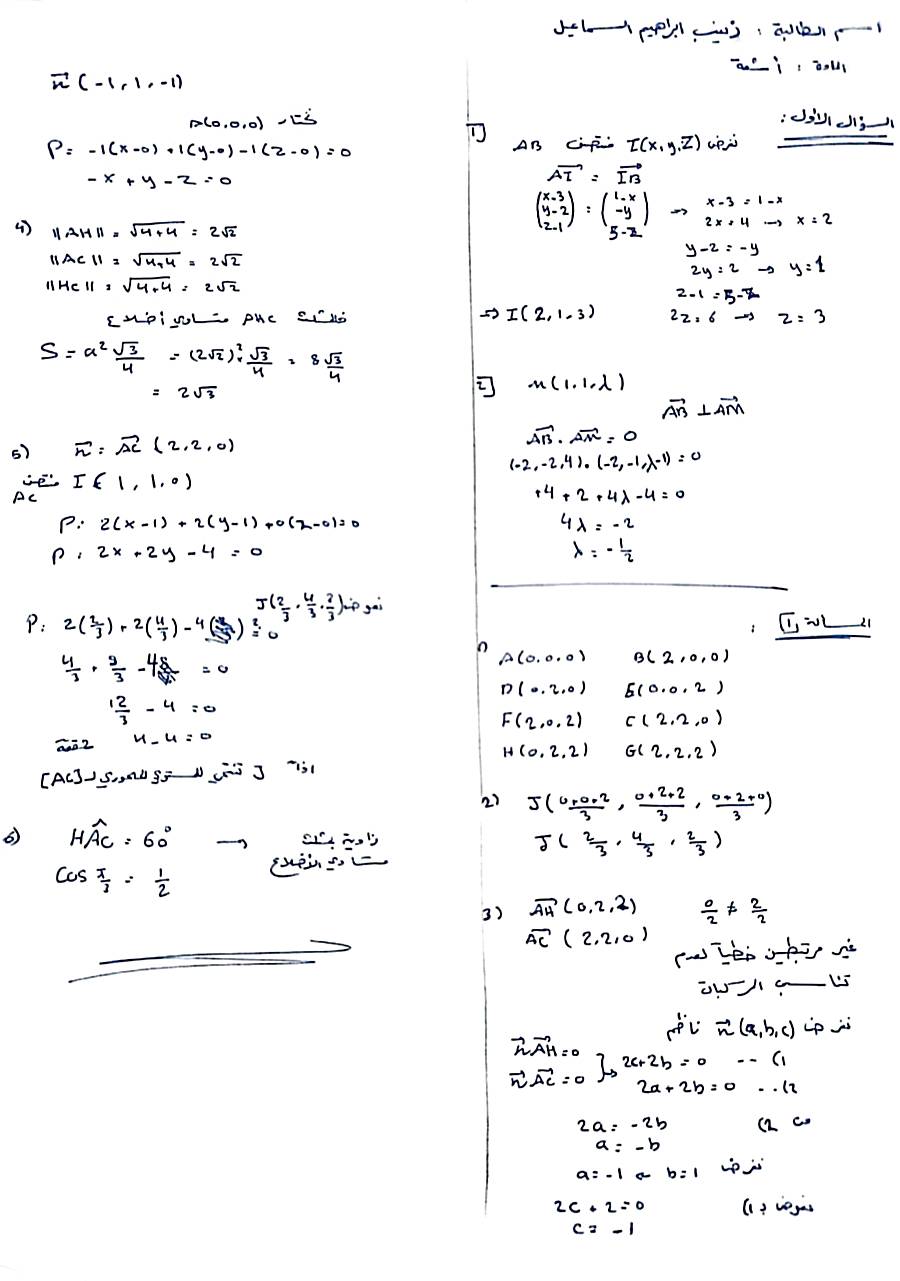 اسم الطالبة : زينب ابراهيم السماعيل
المادة : أشعة
السؤال الأول :
1] نفرض I(x,y,z) منتصف AB
AI = IB
(x-3, y-2, z-1) = (1-x, -y, 5-z) → x-3=1-x
2x=4 → x=2
y-2=-y
2y=2 → y=1
z-1=5-z
2z=6 → z=3
⇒ I(2,1,3)
2] M(1,1,λ)
AB ⊥ AM
AB . AM = 0
(-2,-2,4).(-2,-1,λ-1)=0
+4+2+4λ-4=0
4λ=-2
λ=-1/2
المسألة 1] :
1) A(0,0,0) B(2,0,0)
D(0,2,0) E(0,0,2)
F(2,0,2) C(2,2,0)
H(0,2,2) G(2,2,2)
2) J(0+0+2/3, 0+2+2/3, 0+2+0/3)
J(2/3, 4/3, 2/3)
3) AH(0,2,2) 0/2 ≠ 2/2
AC(2,2,0)
غير مرتبطين خطياً لعدم
تناسب المركبات
نفرض n(a,b,c) ناظم
n AH=0 } 2c+2b=0 -- (1
n AC=0 } 2a+2b=0 --(2
من (2 2a=-2b
a=-b
نفرض b=1 ⇒ a=-1
نعوض ب (1 2c+2=0
c=-1
n(-1,1,-1)
نختار A(0,0,0)
P: -1(x-0)+1(y-0)-1(z-0)=0
-x+y-z=0
4) ||AH|| = √4+4 = 2√2
||AC|| = √4+4 = 2√2
||HC|| = √4+4 = 2√2
فالمثلث AHC متساوي أضلاع
S = a² √3/4 = (2√2)². √3/4 = 8 √3/4
= 2√3
5) n = AC(2,2,0)
I(1,1,0) منتصف AC
P: 2(x-1)+2(y-1)+0(z-0)=0
P: 2x+2y-4=0
نعوض J(2/3, 4/3, 2/3)
P: 2(2/3)+2(4/3)-4 ?= 0
4/3 + 8/3 - 4 = 0
12/3 - 4 = 0
4-4=0 محققة
اذاً J تنتمي للمستوي المحوري لـ [AC]
6) HAC = 60° → زاوية بمثلث
متساوي الأضلاع
Cos π/3 = 1/2